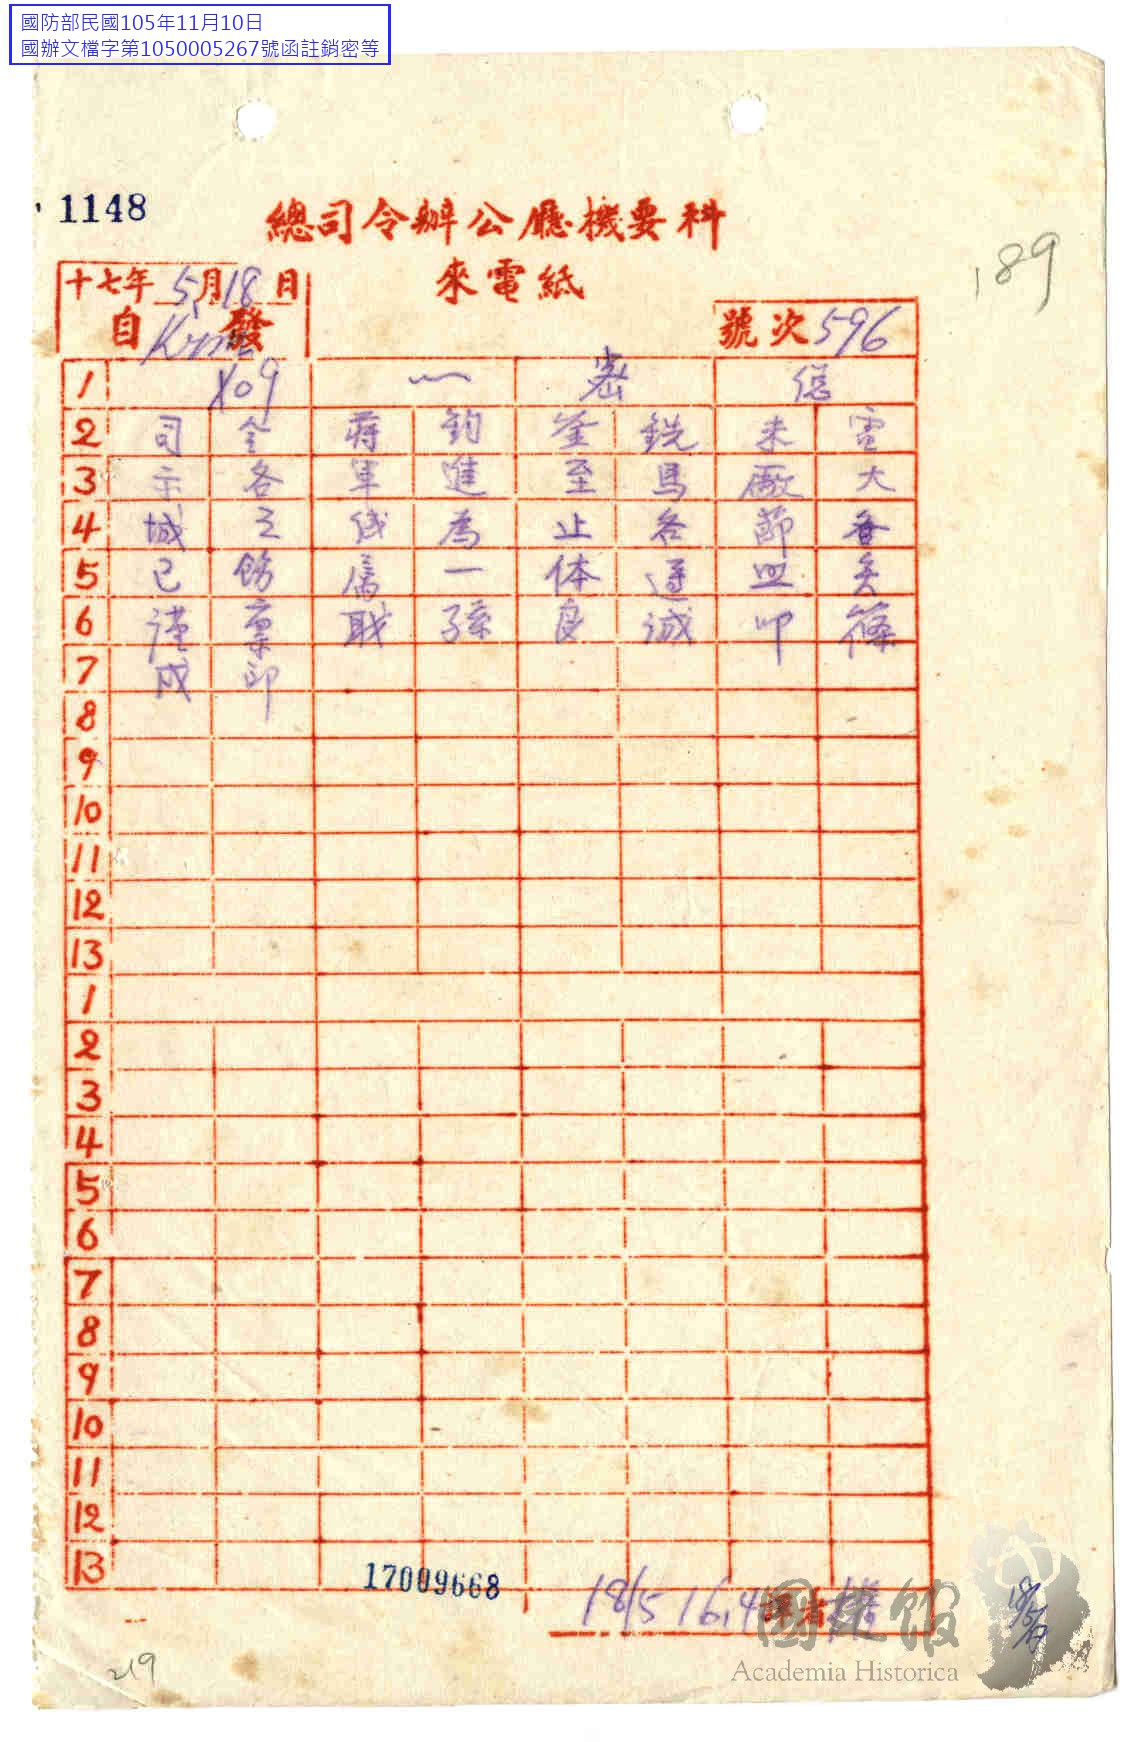 國防部民國105年11月10日
國辦文檔字第1050005267號函註銷密等
1148
總司令辦公廳機要科
來電紙
189
十七年5月18日
自 發
號次596
1 密 總
2 司令蔣鈞鉴銑未電
3 示各軍進至馬廠大
4 城之线為止各節奋
5 已飭属一体遵照矣
6 謹禀職孫良誠叩篠
7 成印
8
9
10
11
12
13
1
2
3
4
5
6
7
8
9
10
11
12
13
17009668
18/5 16.4 譯者
國史館
Academia Historica
219